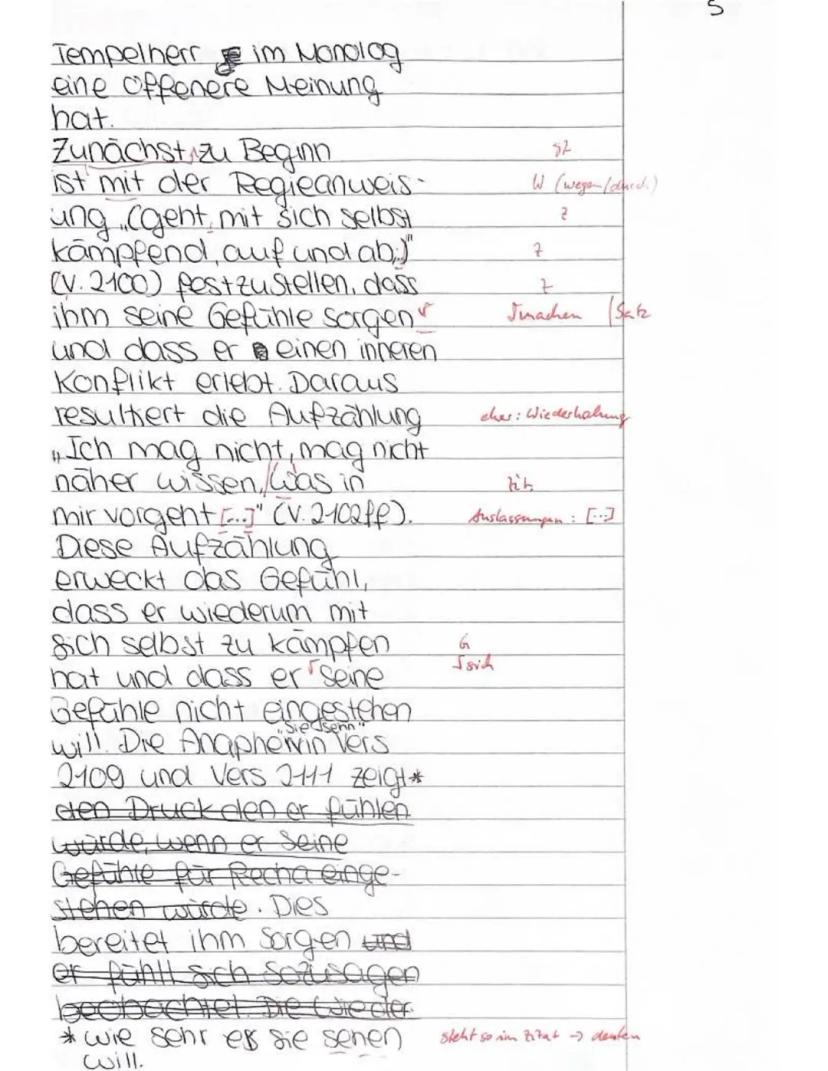 5
Tempelherr im Monolog
eine offenere Meinung
hat.
Zunächst zu Beginn sz
ist mit der Regieanweis- W (wegen/durch)
ung „(geht, mit sich selbst z
kämpfend, auf und ab;)" z
(V. 2100) festzustellen, dass z
ihm seine Gefühle sorgen √ √machen /Satz
und dass er einen inneren
Konflikt erlebt. Daraus
resultiert die Aufzählung eher: Wiederholung
„Ich mag nicht, mag nicht
näher wissen/Was in Zit.
mir vorgeht [...]" (V. 2102ff). Auslassungen: [...]
Diese Aufzählung
erweckt das Gefühl,
dass er wiederum mit
sich selbst zu kämpfen G
hat und dass er √ seine √sich
Gefühle nicht eingestehen
will. Die Anapher „Sie sehn" in Vers
2109 und Vers 2111 zeigt*
den Druck den er fühlen
würde, wenn er seine
Gefühle für Recha einge-
stehen würde. Dies
bereitet ihm Sorgen und
er fühlt sich sozusagen
beobachtet. Die Wieder
* wie sehr er sie sehen steht so im Zitat →
will.